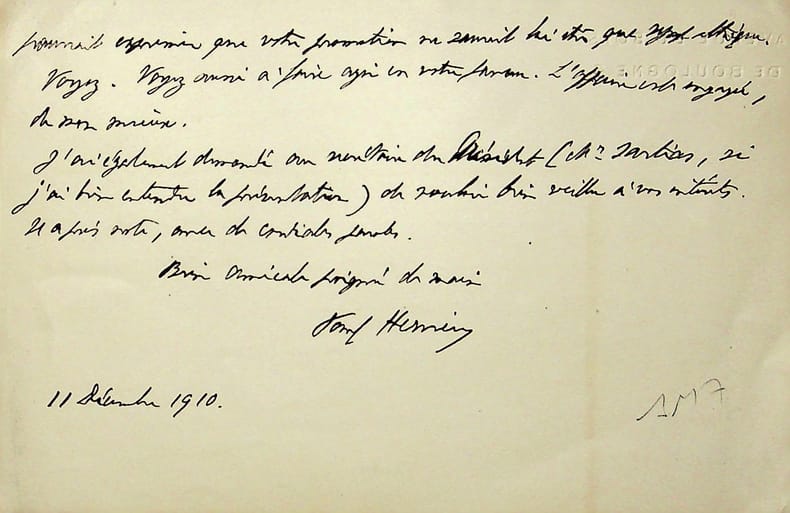 pourrait exprimer que votre promotion ne saurait lui être que sympathique.
Voyez. Voyez aussi à faire agir en votre faveur. L'affaire est engagée,
de mon mieux.
J'ai également demandé au secrétaire du Président (Mr Sarlias, si
j'ai bien entendu la présentation) de vouloir bien veiller à vos intérêts.
Il a pris note, avec de cordiales paroles.
Bien amicale poignée de main
Hermieu
11 Décembre 1910.
AM7
DE BOULOGNE